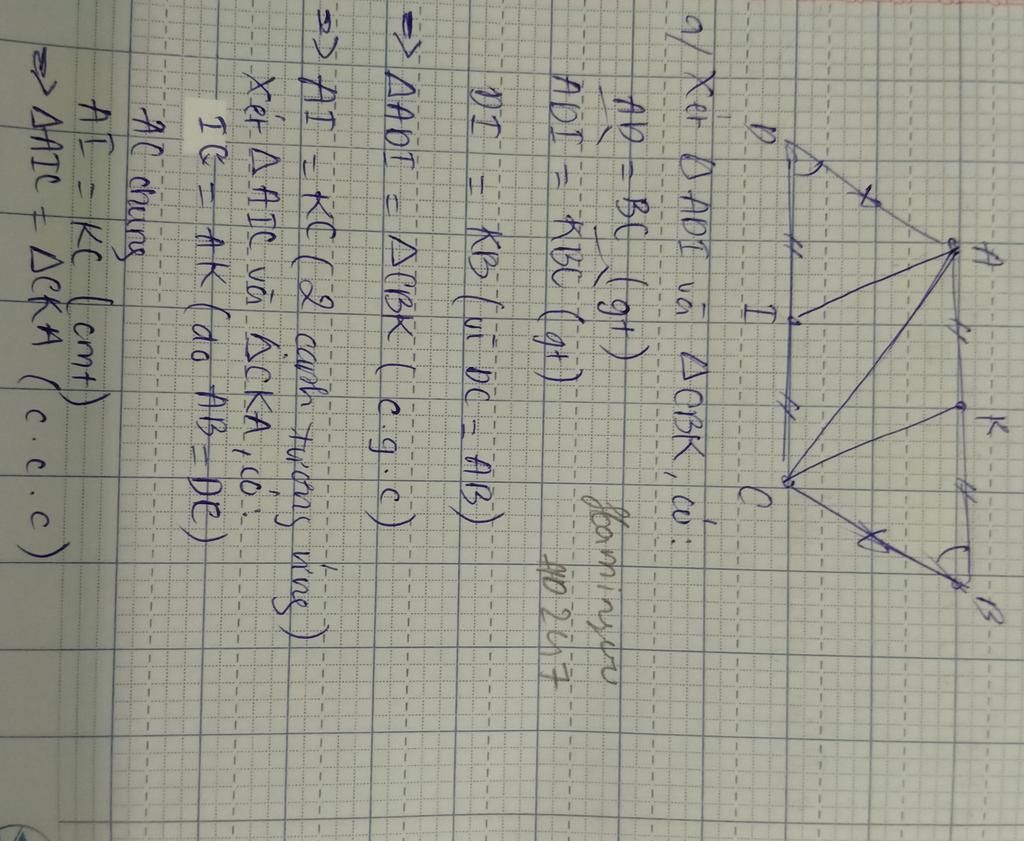 A K B
D I C
a/ Xét ΔADI và ΔCBK, có:
AD = BC (gt)
ADI = KBC (gt)
DI = KB (vì DC = AB)
=> ΔADI = ΔCBK (c.g.c)
=> AI = KC (2 cạnh tương ứng)
Xét ΔAIC và ΔCKA, có:
IC = AK (do AB = DC)
AC chung
AI = KC (cmt)
=> ΔAIC = ΔCKA (c.c.c)